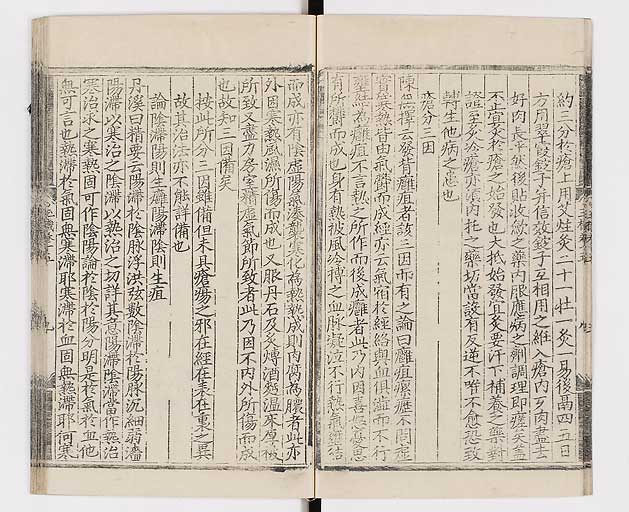 約三分於瘡上用艾炷灸二十一壯一灸一易後隔四五日
方用翠霞錠子并信效錠子互相用之維入瘡內歹肉盡去
好肉長平然後貼收斂之藥內服應病之劑調理即瘥矣蓋
不止宜灸於瘡之始發也大抵始發宜灸要汗下補養之藥對
證至灸冷瘡亦須內托之藥切當設有反逆不惟不愈恐致
轉生他病之患也
瘡分三因
陳無擇云發背癰疽者該三因而有之論曰癰疽瘰癧不問虛
實寒熱皆由氣鬱而成經亦云氣宿於經絡與血俱澁而不行
壅結為癰疽不言熱之所作而後成癰者此乃內因喜怒憂思
有所鬱而成也身有熱被風冷搏之血脉凝泣不行熱氣壅結
而成亦有陰虛陽氣湊襲寒化為熱熱成則肉腐為膿者此亦
外因寒熱風濕所傷而成也又服丹石及炙煿酒麪溫床厚被
所致又盡力房室精虛氣節所致者此乃因不內外所傷而成
也故知三因備矣
按此所分三因雖備但未具瘡瘍之邪在經在表在裏之異
故其治法亦不能詳備也
論陰滯陽則生癰陽滯陰則生疽
丹溪曰精要云陽滯於陰脉浮洪弦數陰滯於陽脉沉細弱濇
陽滯以寒治之陰滯以熱治之切詳其意陽滯陰滯當作熱治
寒治求之寒熱固可作陰陽論於陰於陽分明是於氣於血他
無可言也熱滯於氣固無寒滯耶寒滯於血固無熱滯耶何寒